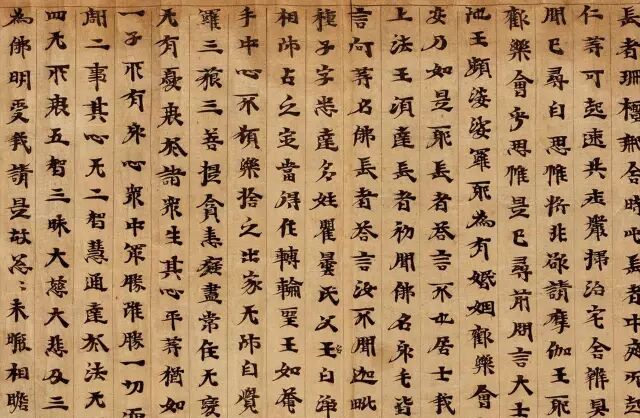 長者珊檀那舍時此長者中夜而
仁等可起速共庄嚴掃治宅舍辨具
聞已尋自思惟將非欲請摩伽王
歡樂會乎思惟是已尋前問言大士
池王頻婆娑羅耶為有婚姻歡樂會
安乃如是耶長者荅言不也居士我
上法王須達長者初聞佛名身毛皆
言何等名佛長者荅言汝不聞迦毗
種子字悉達名姓瞿曇氏父王白
相師占之定當得作轉輪聖王如菴
手中心不願樂捨之出家无師自覺
羅三藐三菩提貪恚癡盡常住无變
无有憂畏於諸眾生其心平等猶如
一子所有身心眾中第勝雖勝一切而
割二事其心无二智慧通達於法无
四无所畏五智三昧大慈大悲及三
為佛明受我請是故怱〻未暇相瞻